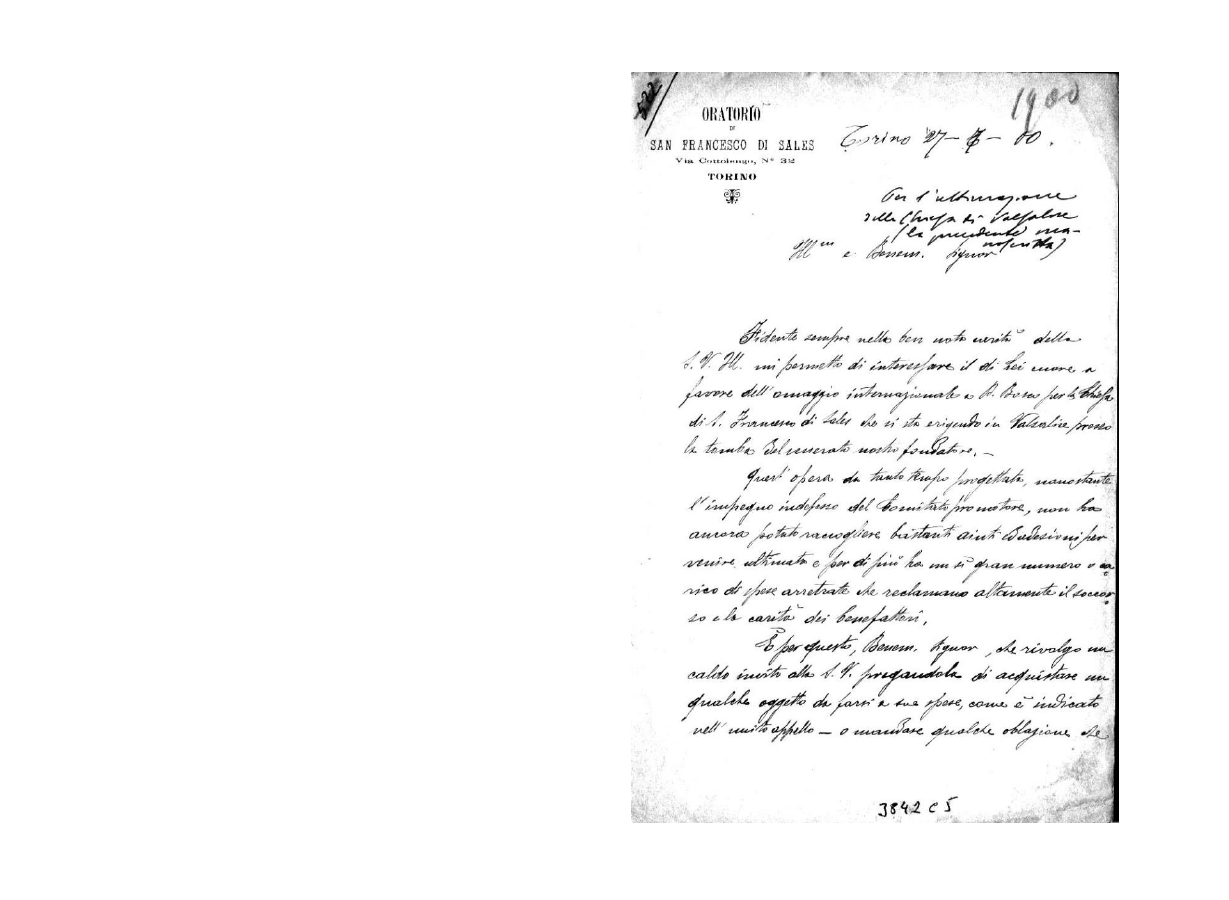 1900
ORATORIO
DI
SAN FRANCESCO DI SALES
Via Cottolengo, N° 32
TORINO
Torino 27 – – 00.
Per l'ultimazione
della Chiesa di Valsalice
(la precedente ma-
noscritta)
Ill.mo e Benem. Signor
Fidente sempre nella ben nota carità della
S. V. Ill. mi permetto di interessare il di Lei cuore a
favore dell'omaggio internazionale a D. Bosco per la Chiesa
di S. Francesco di Sales che si sta erigendo in Valsalice presso
la tomba del venerato nostro fondatore. –
Quest'opera da tanto tempo progettata, nonostante
l'impegno indefesso del Comitato promotore, non ha
ancora potuto raccogliere bastanti aiuti ed adesioni per
venire ultimata e per di più ha un sì gran numero o ca=
rico di spese arretrate che reclamano altamente il soccor=
so e la carità dei benefattori.
È per questo, Benem. Signor, che rivolgo un
caldo invito alla S. V. pregandola di acquistare un
qualche oggetto da farsi a sue spese, come è indicato
nell'unito appello – o mandare qualche oblazione che
3842 C 5